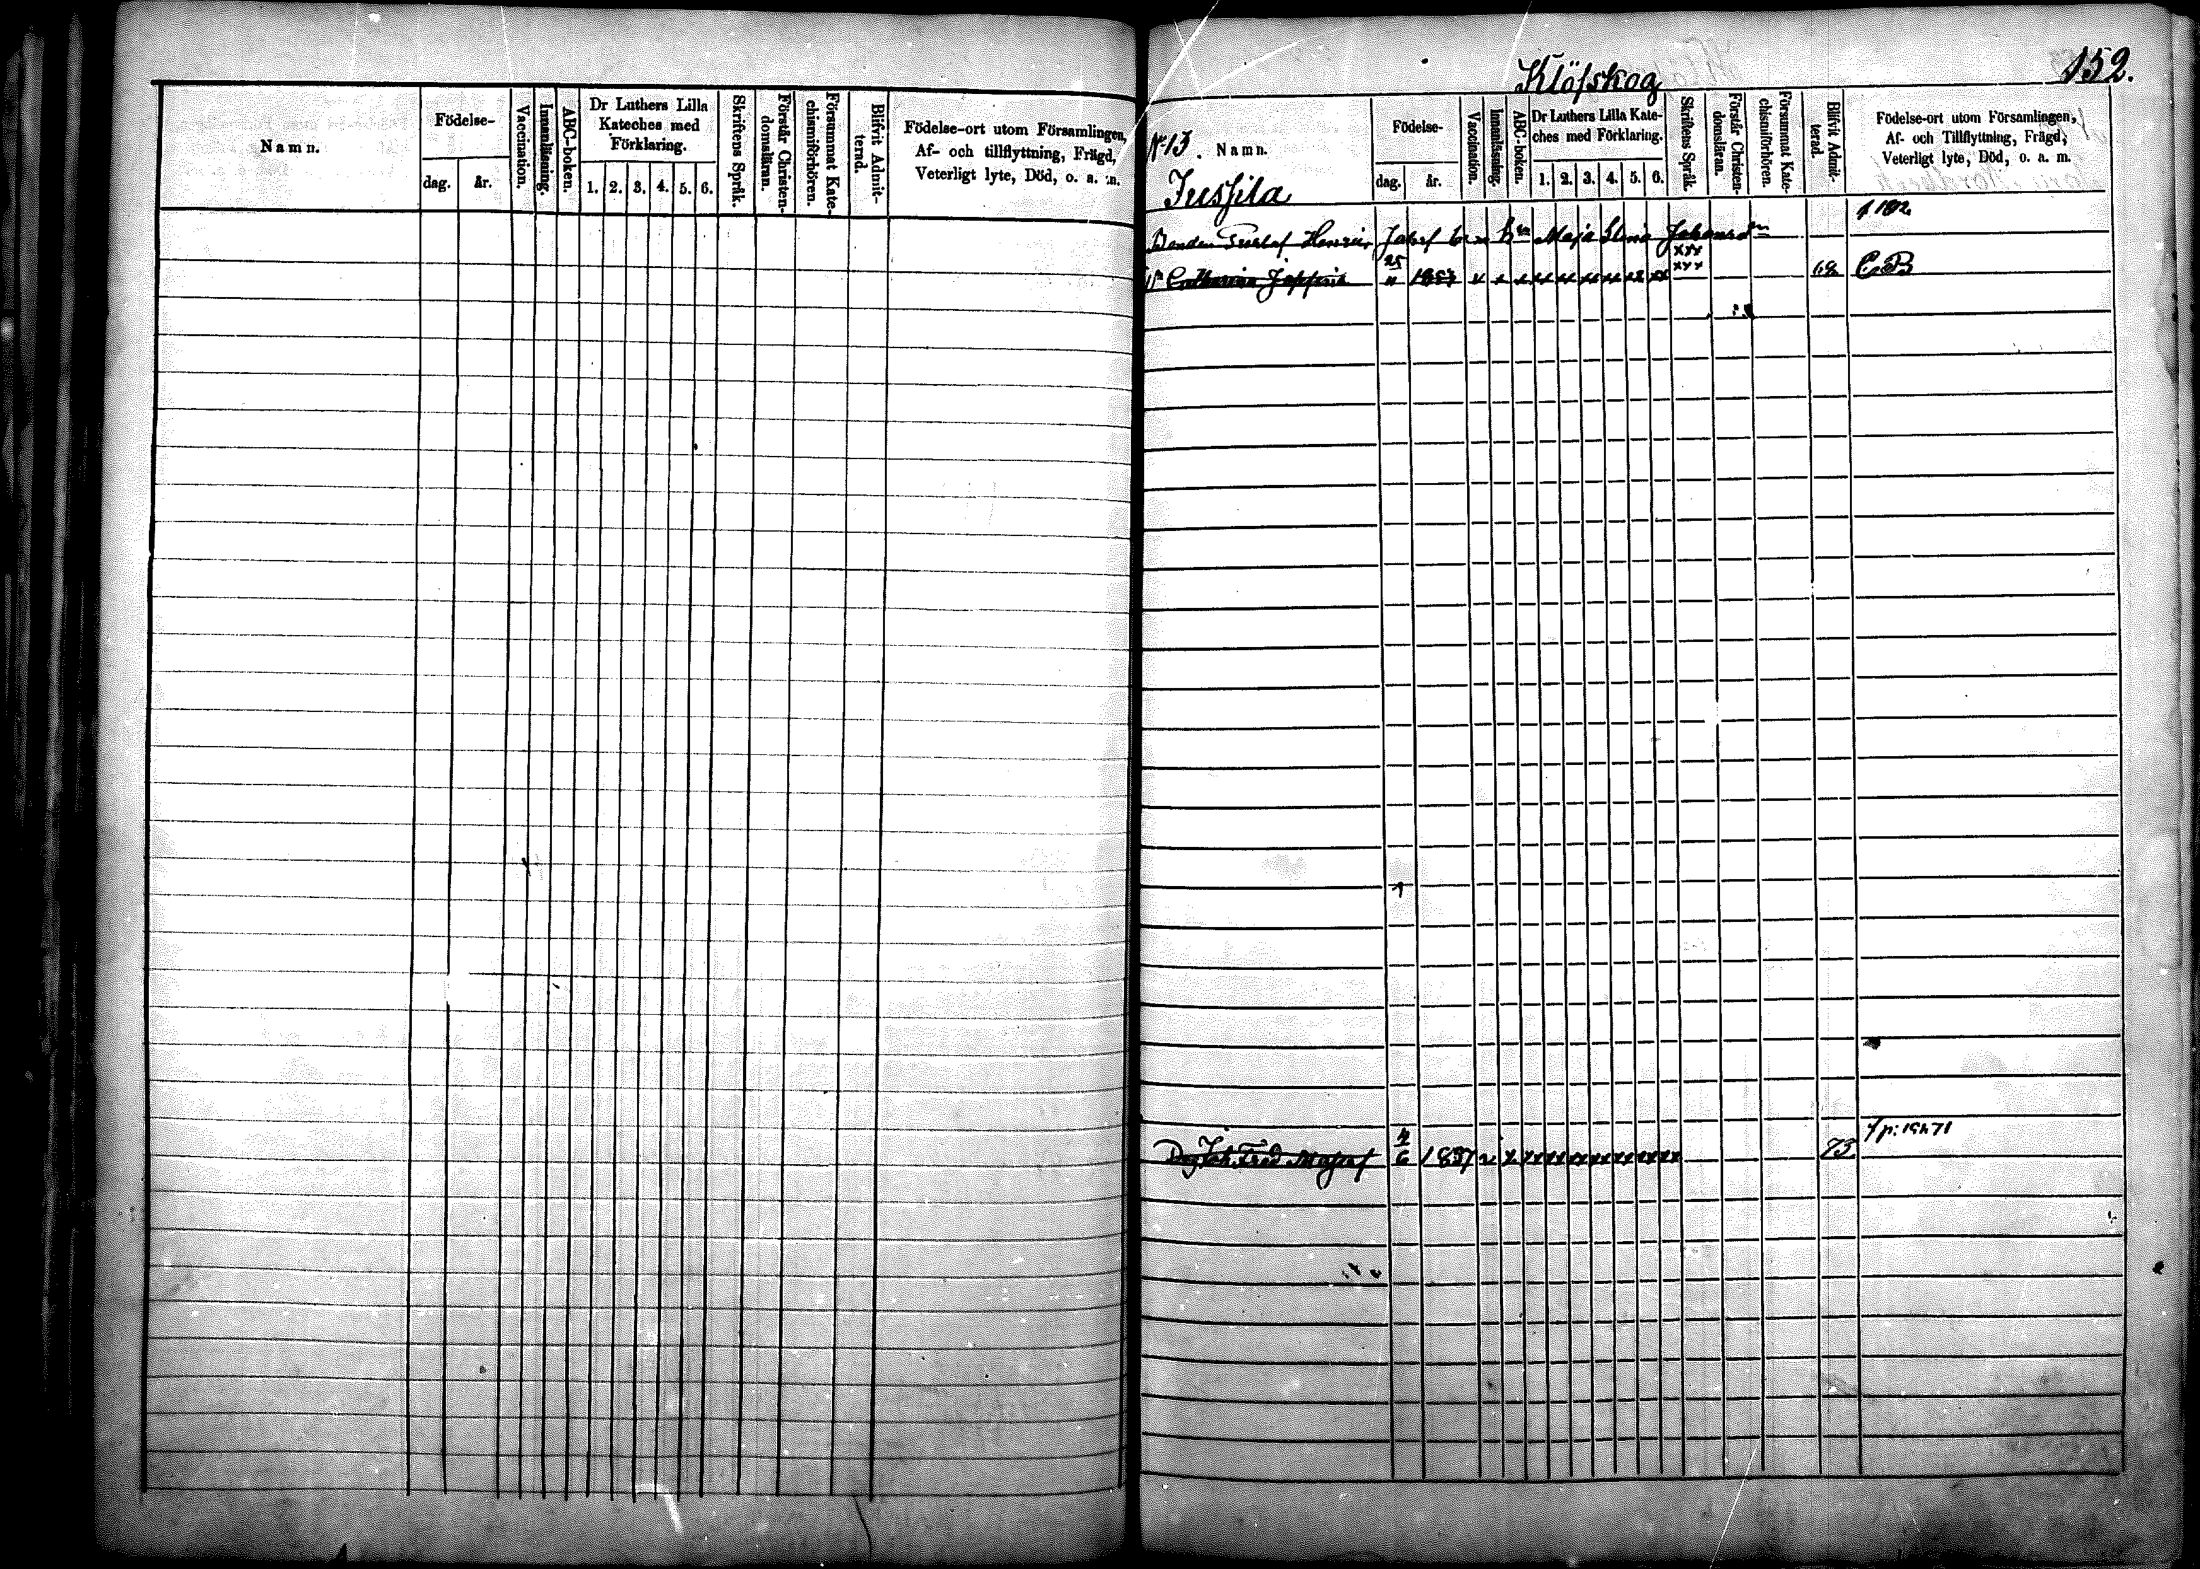 Namn.
Födelse-
dag. år.
Vaccination.
Innanläsning.
ABC-boken.
Dr Luthers Lilla
Kateches med
Förklaring.
1. 2. 3. 4. 5. 6.
Skriftens Språk.
Förstår Christen-
domsläran.
Försummat Kate-
chismiförhören.
Blifvit Admit-
terad.
Födelse-ort utom Församlingen,
Af- och tillflyttning, Frägd,
Veterligt lyte, Död, o. a. m.
Klöfskog
152.
N 13. Namn.
Födelse-
dag. år.
Vaccination.
Innanläsning.
ABC-boken.
Dr Luthers Lilla Kate-
ches med Förklaring.
1. 2. 3. 4. 5. 6.
Skriftens Språk.
Förstår Christen-
domsläran.
Försummat Kate-
chismiförhören.
Blifvit Admit-
terad.
Födelse-ort utom Församlingen,
Af- och Tillflyttning, Frägd,
Veterligt lyte, Död, o. a. m.
Jussila
Bonden Gustaf Henric Maja Johansdr
Catharina 25 x x x xx xx xx xx xx xxx
Joh. Fred. 4/6 1837 x x 73